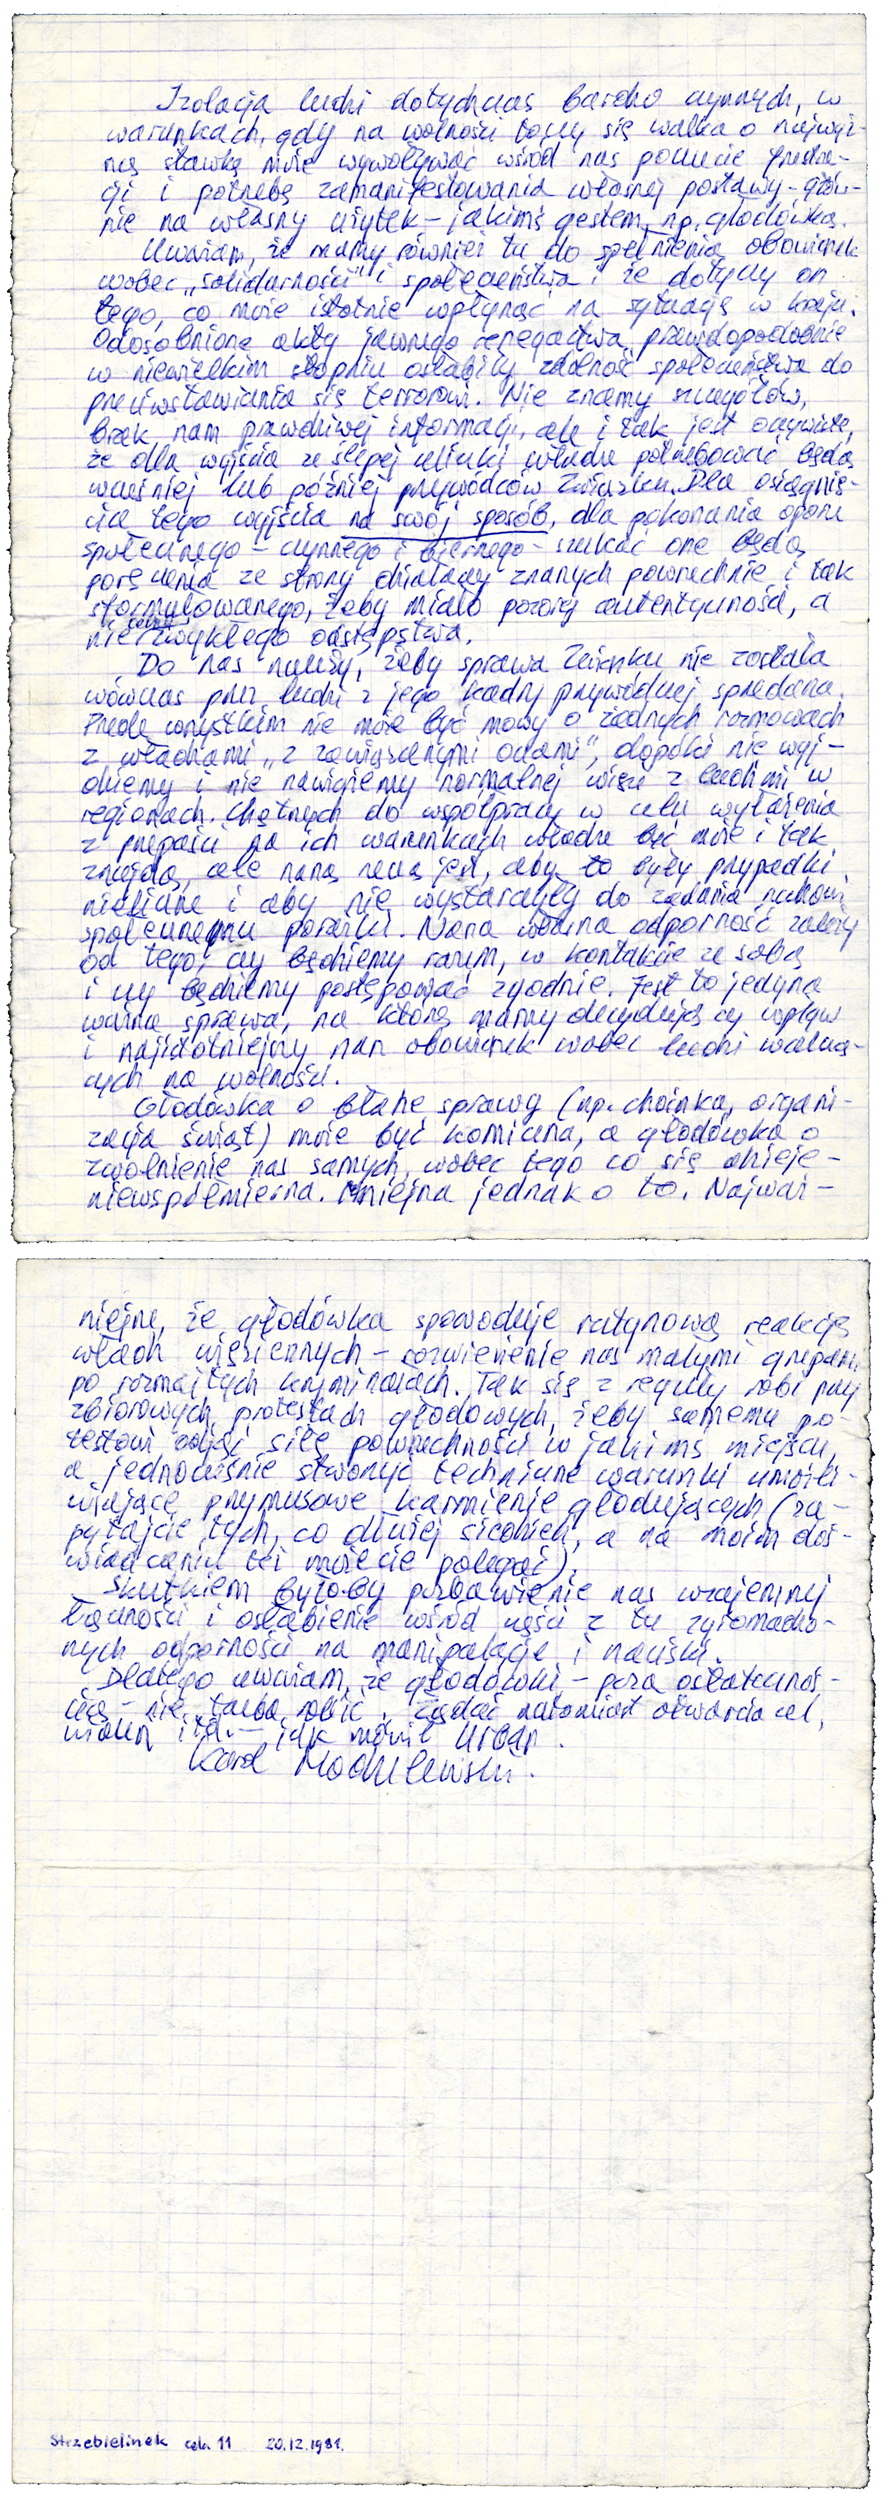 Izolacja ludzi dotychczas bardzo czynnych, w
warunkach, gdy na wolności toczy się walka o najwyż-
szą stawkę może wywoływać wśród nas poczucie frustra-
cji i potrzebę zamanifestowania własnej postawy - głów-
nie na własny użytek - jakimś gestem, np. głodówką.
Uważam, że mamy również tu do spełnienia obowiązek
wobec „Solidarności" i społeczeństwa i że dotyczy on
tego, co może istotnie wpłynąć na sytuację w kraju.
Odosobnione akty jawnego renegactwa prawdopodobnie
w niewielkim stopniu osłabiły zdolność społeczeństwa do
przeciwstawiania się terrorowi. Nie znamy szczegółów,
brak nam prawdziwej informacji, ale i tak jest oczywiste,
że dla wyjścia ze ślepej uliczki władze potrzebować będą
wcześniej lub później przywódców Związku. Dla osiągnię-
cia tego wyjścia na swój sposób, dla pokonania oporu
społecznego - czynnego i biernego - szukać one będą
poręczenia ze strony działaczy znanych powszechnie i tak
sformułowanego, żeby miało pozory autentyczności, a
nie zwykłego odstępstwa.
Do nas należy, żeby sprawa Związku nie została
wówczas przez ludzi z jego kadry przywódczej sprzedana.
Przede wszystkim nie może być mowy o żadnych rozmowach
z władzami „z zawiązanymi oczami", dopóki nie wyj-
dziemy i nie nawiążemy normalnej więzi z ludźmi w
regionach. Chętnych do współpracy w celu wyłażenia
z przepaści na ich warunkach władze być może i tak
znajdą, ale naszą rzeczą jest, aby to były przypadki
nieliczne i aby nie wystarczyły do zadania ruchowi
społecznemu porażki. Nasza własna odporność zależy
od tego, czy będziemy razem, w kontakcie ze sobą
i czy będziemy postępować zgodnie. Jest to jedyna
ważna sprawa, na którą mamy decydujący wpływ
i najistotniejszy nasz obowiązek wobec ludzi walczą-
cych na wolności.
Głodówka o błahe sprawy (np. choinka, organi-
zacja świąt) może być komiczna, a głodówka o
zwolnienie nas samych, wobec tego co się dzieje -
niewspółmierna. Mniejsza jednak o to. Najważ-
niejsze, że głodówka spowoduje rutynową reakcję
władz więziennych - rozwiezienie nas małymi grupami
po rozmaitych kryminałach. Tak się z reguły robi przy
zbiorowych protestach głodowych, żeby samemu pro-
testowi odjąć siłę powszechności w jakimś miejscu,
a jednocześnie stworzyć techniczne warunki umożli-
wiające przymusowe karmienie głodujących (za-
pytajcie tych, co dłużej siedzieli, a na moim doś-
wiadczeniu też możecie polegać).
Skutkiem byłoby pozbawienie nas wzajemnej
łączności i osłabienie wśród części z tu zgromadzo-
nych odporności na manipulacje i naciski.
Dlatego uważam, że głodówki - poza ostateczno-
ścią - nie trzeba robić. Żądać natomiast otwarcia cel,
widzeń itd. - jak mówił Urban.
Karol Modzelewski.
Strzebielinek cela 11 20.12.1981.